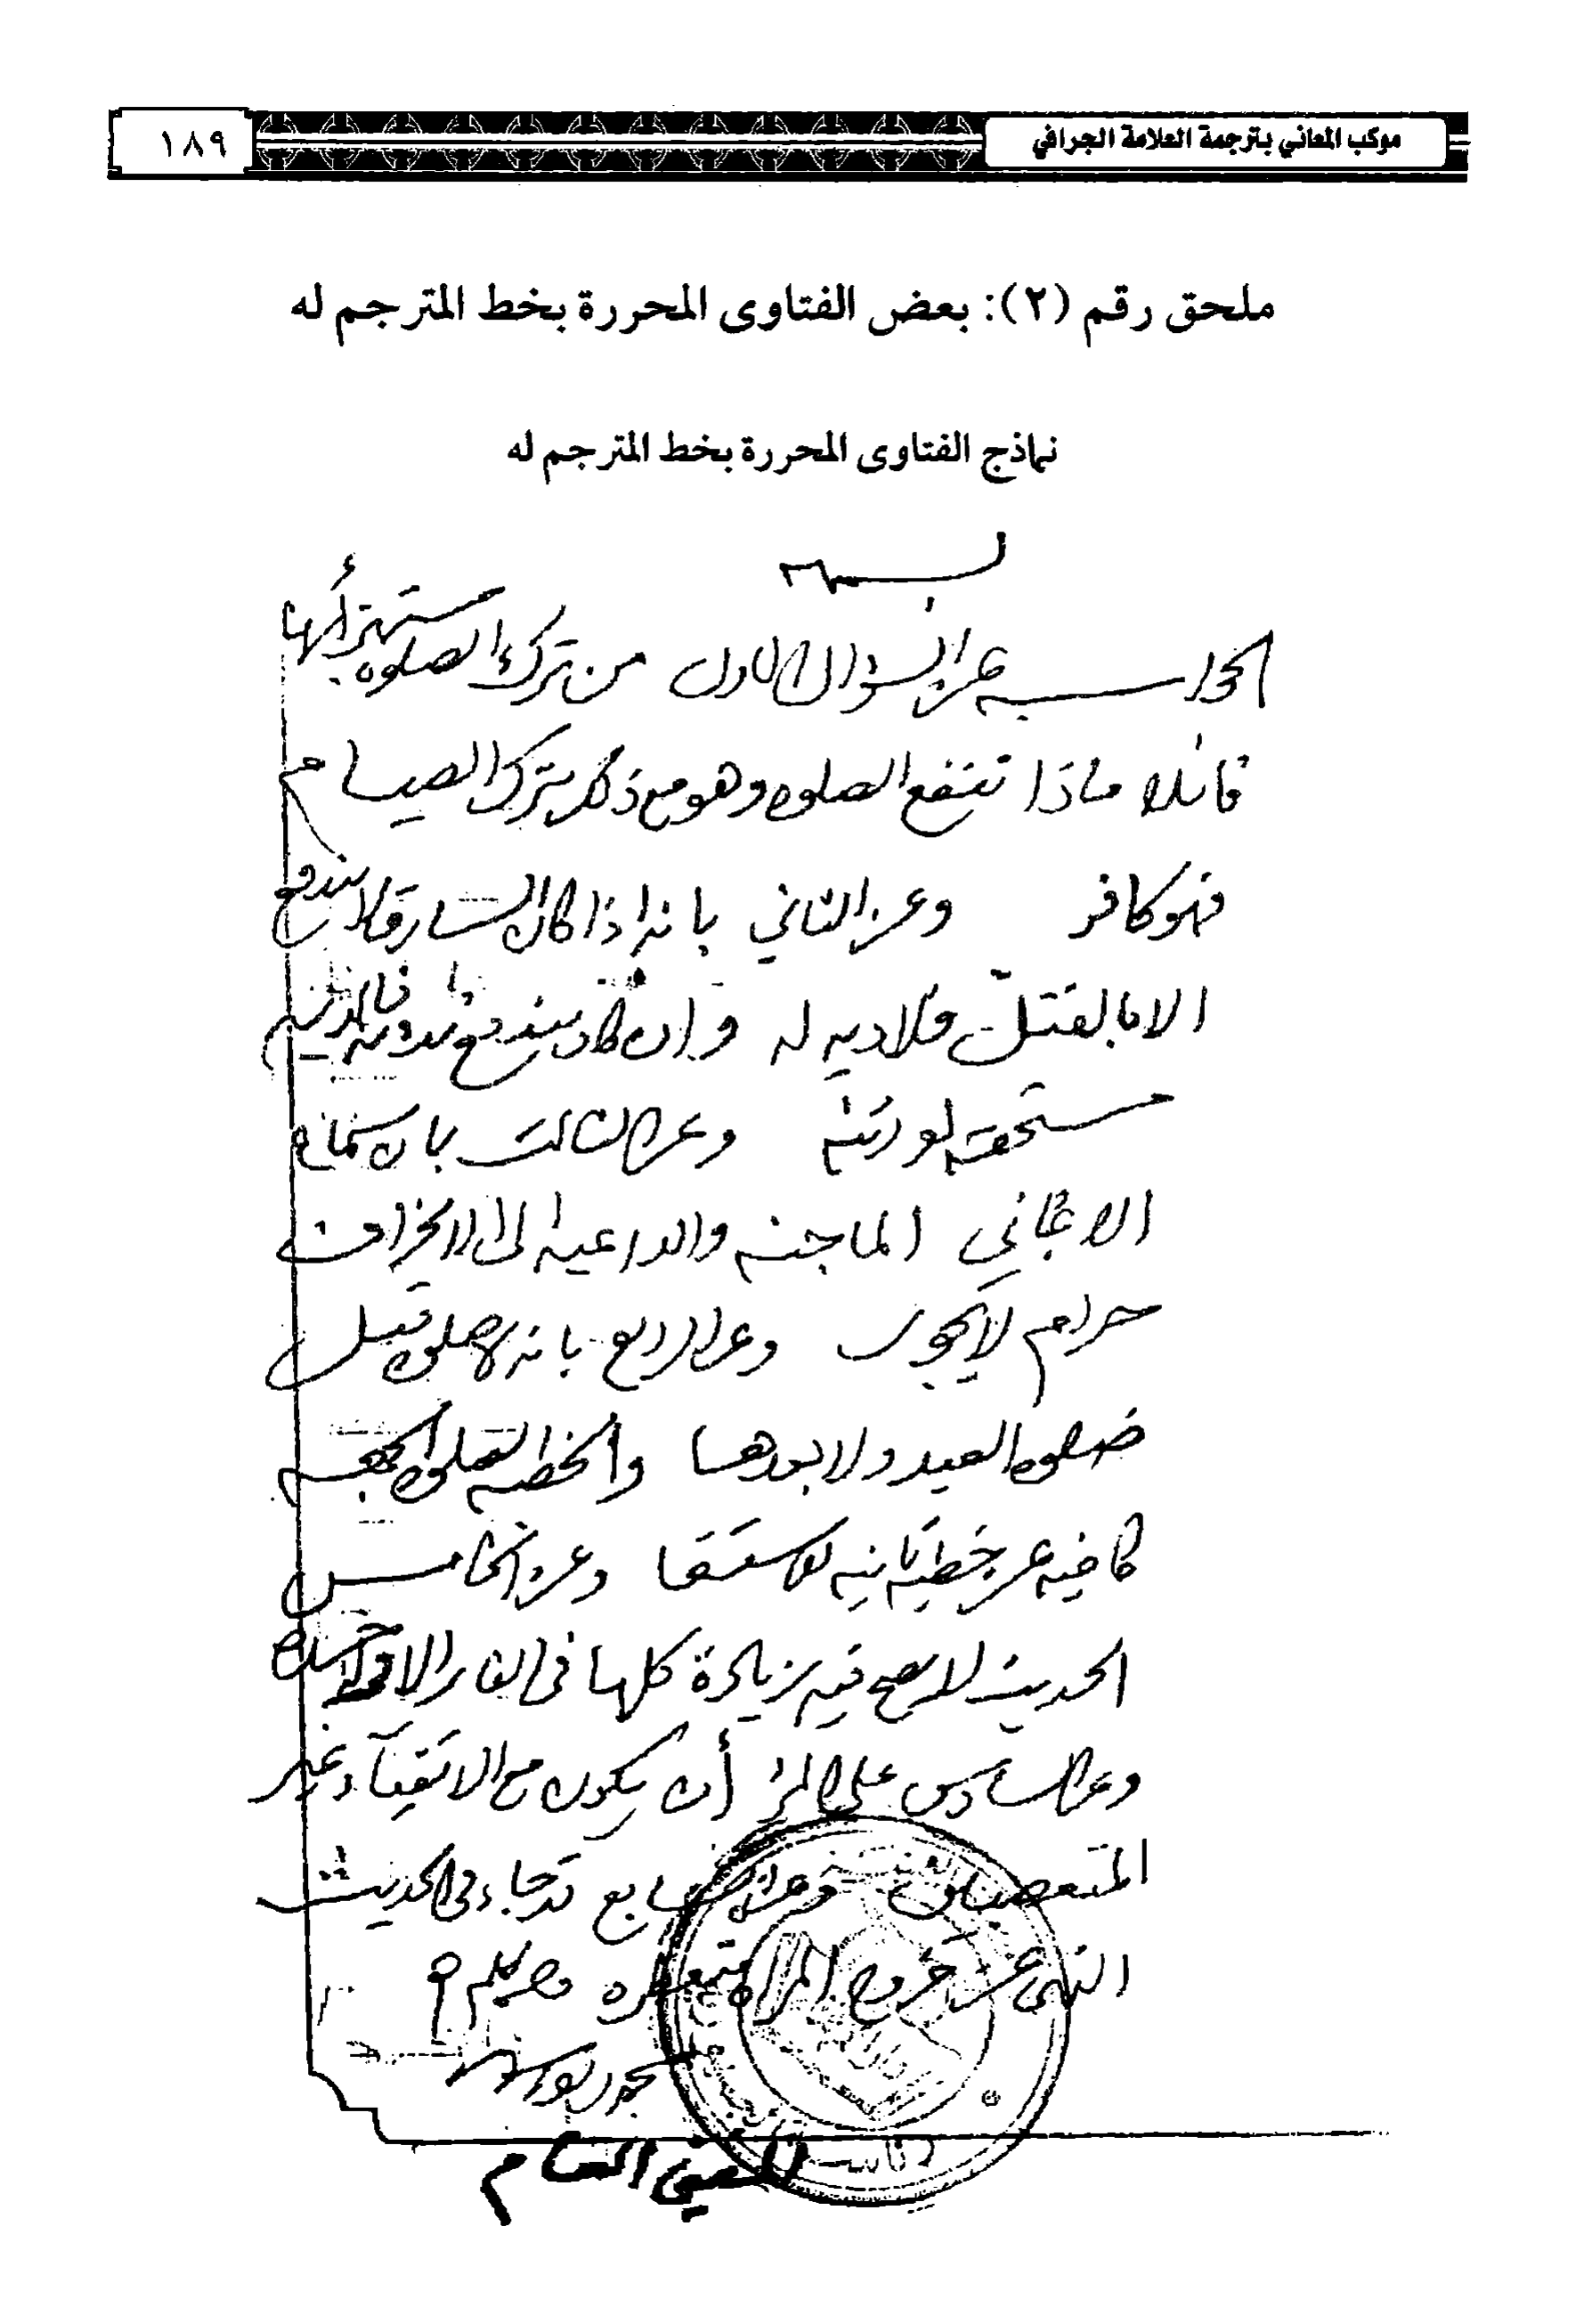 موكب المعاني بترجمة العلامة الجرافي
١٨٩
ملحق رقم (٢): بعض الفتاوى المحررة بخط المترجم له
نماذج الفتاوى المحررة بخط المترجم له
بسم
الجواب عن السؤال الاول من ترك الصلوه مستهزأ بها
قائلا ماذا تنفع الصلوه وهو مع ذلك يترك الصيام
فهو كافر وعن الثاني بانه اذا كان السارق لا يندفع
الا بالقتل فلا ديه له وان كان يندفع بدونه فالديه
مستحقه لورثته وعن الثالث بان سماع
الاغاني الماجنه والداعيه الى الانحراف
حرام لا يجوز وعن الرابع بانه لا صلوه قبل
صلوه العيد ولا بعدها والخطبه لصلوه الجمعه
كافيه عن خطبه ثانيه للاستسقا وعن الخامس
الحديث لم يصح فيه زيادة كلها في النار الا
وعن السادس على المرء أن يكون مع الاتقيآء غير
المتعصبين وعن السابع قد جاء في الحديث
النهي عن خروج المراه متعطره
المفتي العام